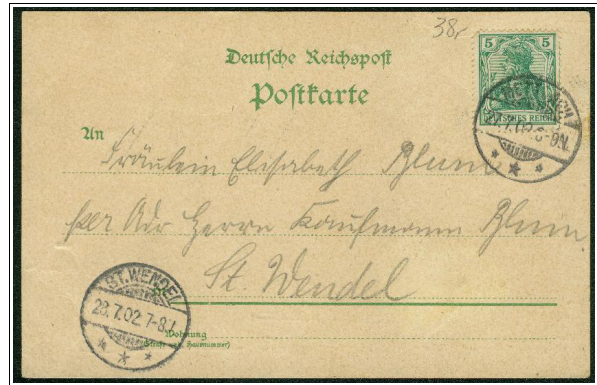 38,-
5 5
DEUTSCHES REICH
Deutsche Reichspost
Postkarte
An
Fräulein Elisabeth Blum
per Adr Herrn Kaufmann Blum
St. Wendel
ST. WENDEL
28.7.02.7-8V.
Wohnung
(Straße und Hausnummer)